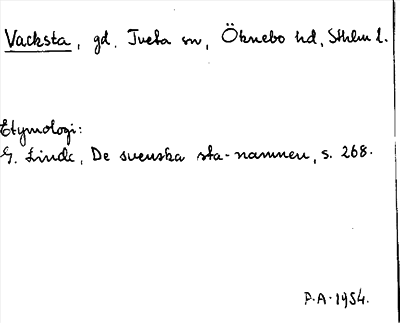 Vacksta, gd. Tveta sn, Öknebo hd, Sthlm l.
Etymologi:
G. Linde, De svenska sta-namnen, s. 268.
P.A. 1954.